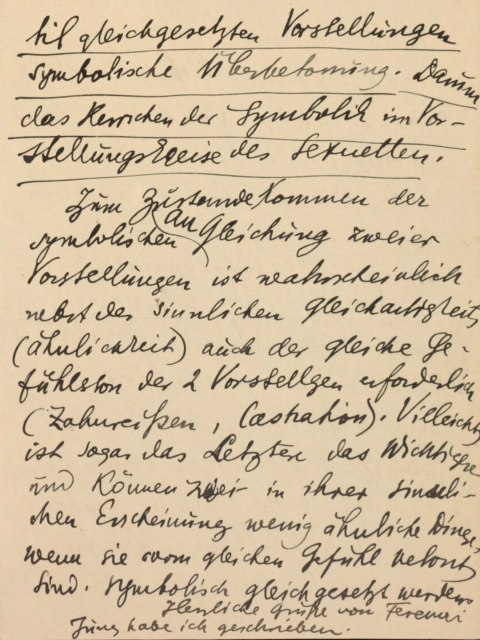 til gleichgesetzten Vorstellungen
symbolische Überbetonung. Darum
das Herrschen der Symbolik im Vor-
stellungskreise des Sexuellen.
Zum Zustandekommen der
symbolischen Angleichung zweier
Vorstellungen ist wahrscheinlich
nebst der sinnlichen Gleichartigkeit
(ähnlichkeit) auch der gleiche Ge-
fühlston der 2 Vorstellgen erforderlich
(Zahnreißen, Castration). Villeicht
ist sogar das Letztere das Wichtigere
und können zwei in ihrer sinnli-
chen Erscheinung wenig ähnliche Dinge,
wenn sie vom gleichen Gefühl betont
sind. symbolisch gleichgesetzt werden
Herzliche Grüße von Ferenczi
Jung habe ich geschrieben.